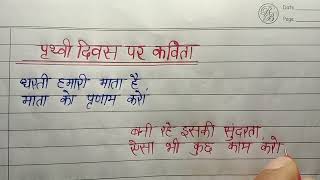 पृथ्वी दिवस पर कविता
धरती हमारी माता है,
माता को प्रणाम करो
बनी रहे इसकी सुंदरता,
ऐसा भी कुछ काम करो।